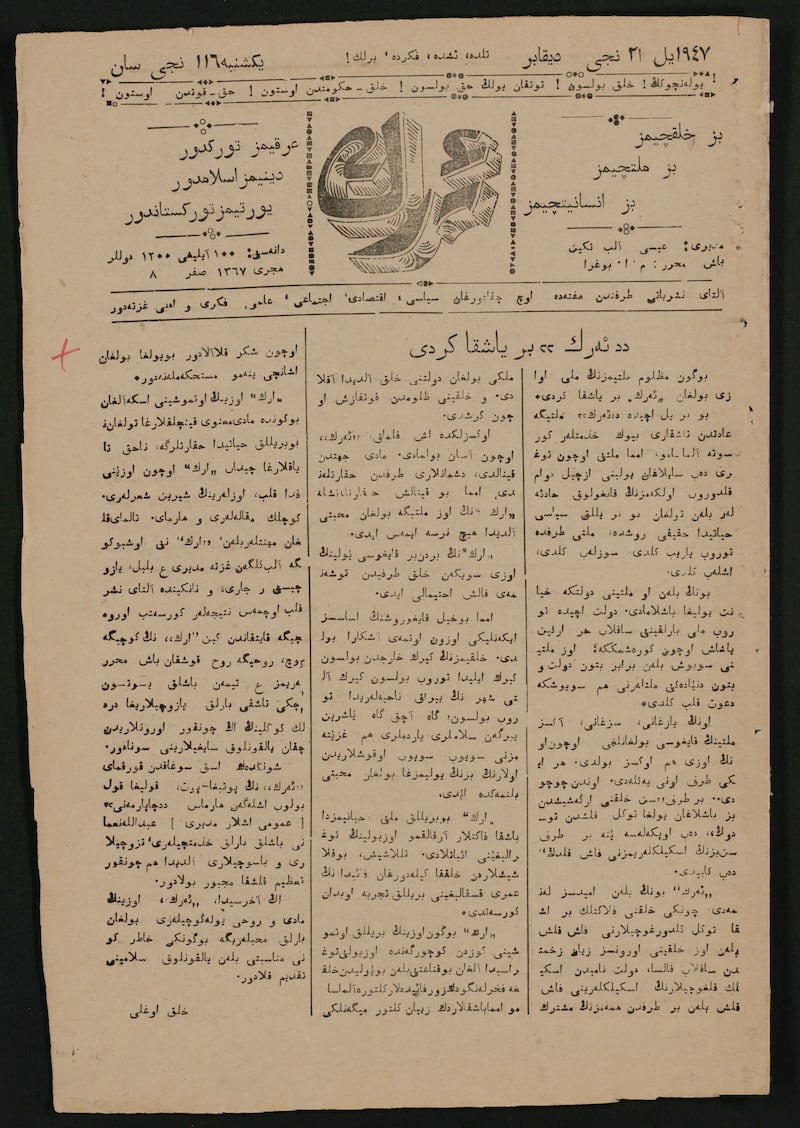 ۱۹۴۷ یل ۲۱ نجی دیقابر
تلده، ئشده، فکرده، برلك!
یکشنبه ۱۱۶ نجی سان
بوله‌نچوك! خلق بولسون! توتقان یولك حق بولسون! خلق-حکومتدن اوستون! حق-قوتدن اوستون!
بز خلقچیمز
بز ملتچیمز
بز انسانیتچیمز
مدیری: عیسی آلب تکین
باش محرر: م.ا. بوغرا
ئەرك
عرقیمز تورکدور
دینیمز اسلامدور
یورتیمز تورکستاندور
دانه‌سی: ۱۰۰ آیلیغی ۱۲۰۰ دوللر
هجری ۱۳۶۷ صفر ۸
آلتای نشریاتی طرفندن هفته‌ده اوچ چقادورغان سیاسی، اقتصادی، اجتماعی، علمی، فکری و ادبی غزته‌دور
«ئەرك» بر یاشقا کردی
بوگون مظلوم ملتیمزنك ملی اوا
زی بولغان «ئەرك» بر یاشقا کردی.
بو بر یل ایچیده «ئەرك» ملتیگه
عادتدن تاشقاری بیوك خدمتلەر کور
سوته آلمامامو، امما ملتی اوچون توغ
ری دەب سایلاغان یولینی ازچیل دوام
قلدوروب اولکەمزنك قایغولوق حادثه
لەر بلەن تولغان بو بر یللق سیاسی
حیاتیدا حقیقی روشده، ملتی طرفده
توروب یازیب کلدی، سوزلەب کلدی،
اشلەب کلدی.
بونك بلەن او ملتینی دولتکه خیا
نت یولیغا باشلامادی. دولت ایچیده تو
روب ملی بارلقینی ساقلاب هر ارکین
یاشاش اوچون کورەشمککه! اوز ملتی
نی سویوش بلەن برابر بتون دولت و
بتون دنیاده‌کی ملتلەرنی هم سویوشکه
دعوت قلب کلدی.
اونك یازغانی، سزغانی، آکسز
ملتینك قایغوسی بولغانلغی اوچون او
نك اوزی هم اوکسز بولدی. هر ای
کی طرف اونی یەکلەدی. اوندن چوچو
دی. بر طرف خلقنی ارکەشیشدن
بز باشلاغان یولغا توکل قلشدن توس
دوك، دەب اوپکەلەسە ینە بر طرف
سن بزنك اسکیلکلەریمزنی فاش قلدك،
دەب کاییدی.
«ئەرك» بونك بلەن امیدسز لەن
مەدی. چونکی خلقنی فلاکتلك بر اش
قا توکل قلدورغوچیلارنی فاش قلش
بلەن اوز خلقینی اورونسز زیان زخمت
دن ساقلاب قالسا، دولت نامیدن اسکی
لك قلغوچیلارنك اسکیلکلەرینی فاش
قلش بلەن بر طرفدن هممەمزنك مشترك
ملکی بولغان دولتنی خلق آلدیدا آقلا
دی. و خلقینی ظلومدن قوتقازش او
چون کرشدی.
اوکسزلکده اش قلماق، «ئەرك»
اوچون آسان بولمادی. مادی جهتدن
قینالدی، دشمانلاری طرفدن حقارتلەن
دی. امما بو قینالش حقارتلەنشلە
«ارك» نك اوز ملتیگه بولغان محبتی
آلدیدا هیچ نرسه ایمەس ایدی.
«ارك» نك بردن بر قایغوسی یولینك
اوزی سویگەن خلق طرفیدن توشەن
مەی قالش احتمالی ایدی.
امما بوخیل قایغوروشنك اساسسز
ایکەنلیکی اوزون اوتمەی آشکارا بول
دی. خلقیمزنك کیرك خارجدن بولسون
کیرك ایلیدا توروب بولسون کیرك آل
تی شهر نك یراق ناحیەلەریدا تو
روب بولسون، گاه آچق گاه یاشرین
یبرگەن سلاملری یاردملری هم غزیته
مزنی سویوب سویوب اوقوشلاریدن
اولارنك بزنك یولیمزغا بولغان محبتی
بلنمەکده ایدی.
«ارك» بو بریللق ملی حیاتیمزدا
باشقا فاکتلار آرقالقمو اوز یولینك توغ
رالیغینی اثباتلادی. تللاشیش، بوقلا
شیشلاردن خلققا کیلەدورغان فائیدا نك
عمری قسقالیغینی بریللق تجربه اوبدان
کورسەتدی.
«ارك» بوگون اوزینك بریللق اوتمو
شینی کوزدن کوچورگەنده اوز یولی توغ
راسیدا آلغان بو قناعتی بلەن بو یولیدن خلق
غه فخرلەنگودك زور فائیدەلار کلتوره آلماسا
مو امما باشقالاردك زیان کلتور میگەنلکی
اوچون شکر قلالادور بو یولغا بولغان
اشانچی ینەمو مستحکملەنەدور.
«ارك» اوزینك اوتموشینی اسکەآلغان
بوگونده مادی معنوی قینچلقلارغا تولغان
بو بریللق حیاتیدا حقارتلرگه، ناحق تا
یاقلارغا چیداب «ارك» اوچون اوزینی
فدا قلب، اوزلەرینك شیرین شعرلەری،
کوچلك مقالەلەری و هارمای، تالمای قل
غان مهنتلەربلەن، «ارك» نی اوشبو کو
گه آلب کلگەن غزته مدیری ع بلبل، یازو
چیسی ر جاری، و نانکینده آلتای نشر
قلب اوچمەس نتیجەلەر کورسەتب اورو
چیگه قایتقاندن کین «ارك» نك کوچیگه
کوچ، روحیگه روح قوشقان باش محرر
لەریمز ع تیمەن باشلق بوتون
ایچکی تاشقی بارلق یازوچیلاریغا دره
لك کوکلینك اك چونقور اورونلاریدن
چقان یالقونلوق سایغیلارینی سونادور.
شونکدەك اسق سوغاقدن قورقمای
«ئەرك» نك پوتیغا-پرت، قولیغا قول
بولوب اشلەگەن هارماس «چاپارمەنی»
[ عمومی اشلار مدیری ] عبدالله نعما
نی باشلق بارلق خدمتچیلەری، تزوچیلا
ری و باسوچیلاری آلدیدا هم چونقور
تعظیم قلشقا مجبور بولادور.
اك آخرسیدا، «ئەرك» اوزینك
مادی و روحی یولەکوچیلەری بولغان
بارلق محبلەریگه بوگونکی خاطر کو
نی مناسبتی بلەن یالقونلوق سلامینی
تقدیم قلادور.
خلق اوغلی